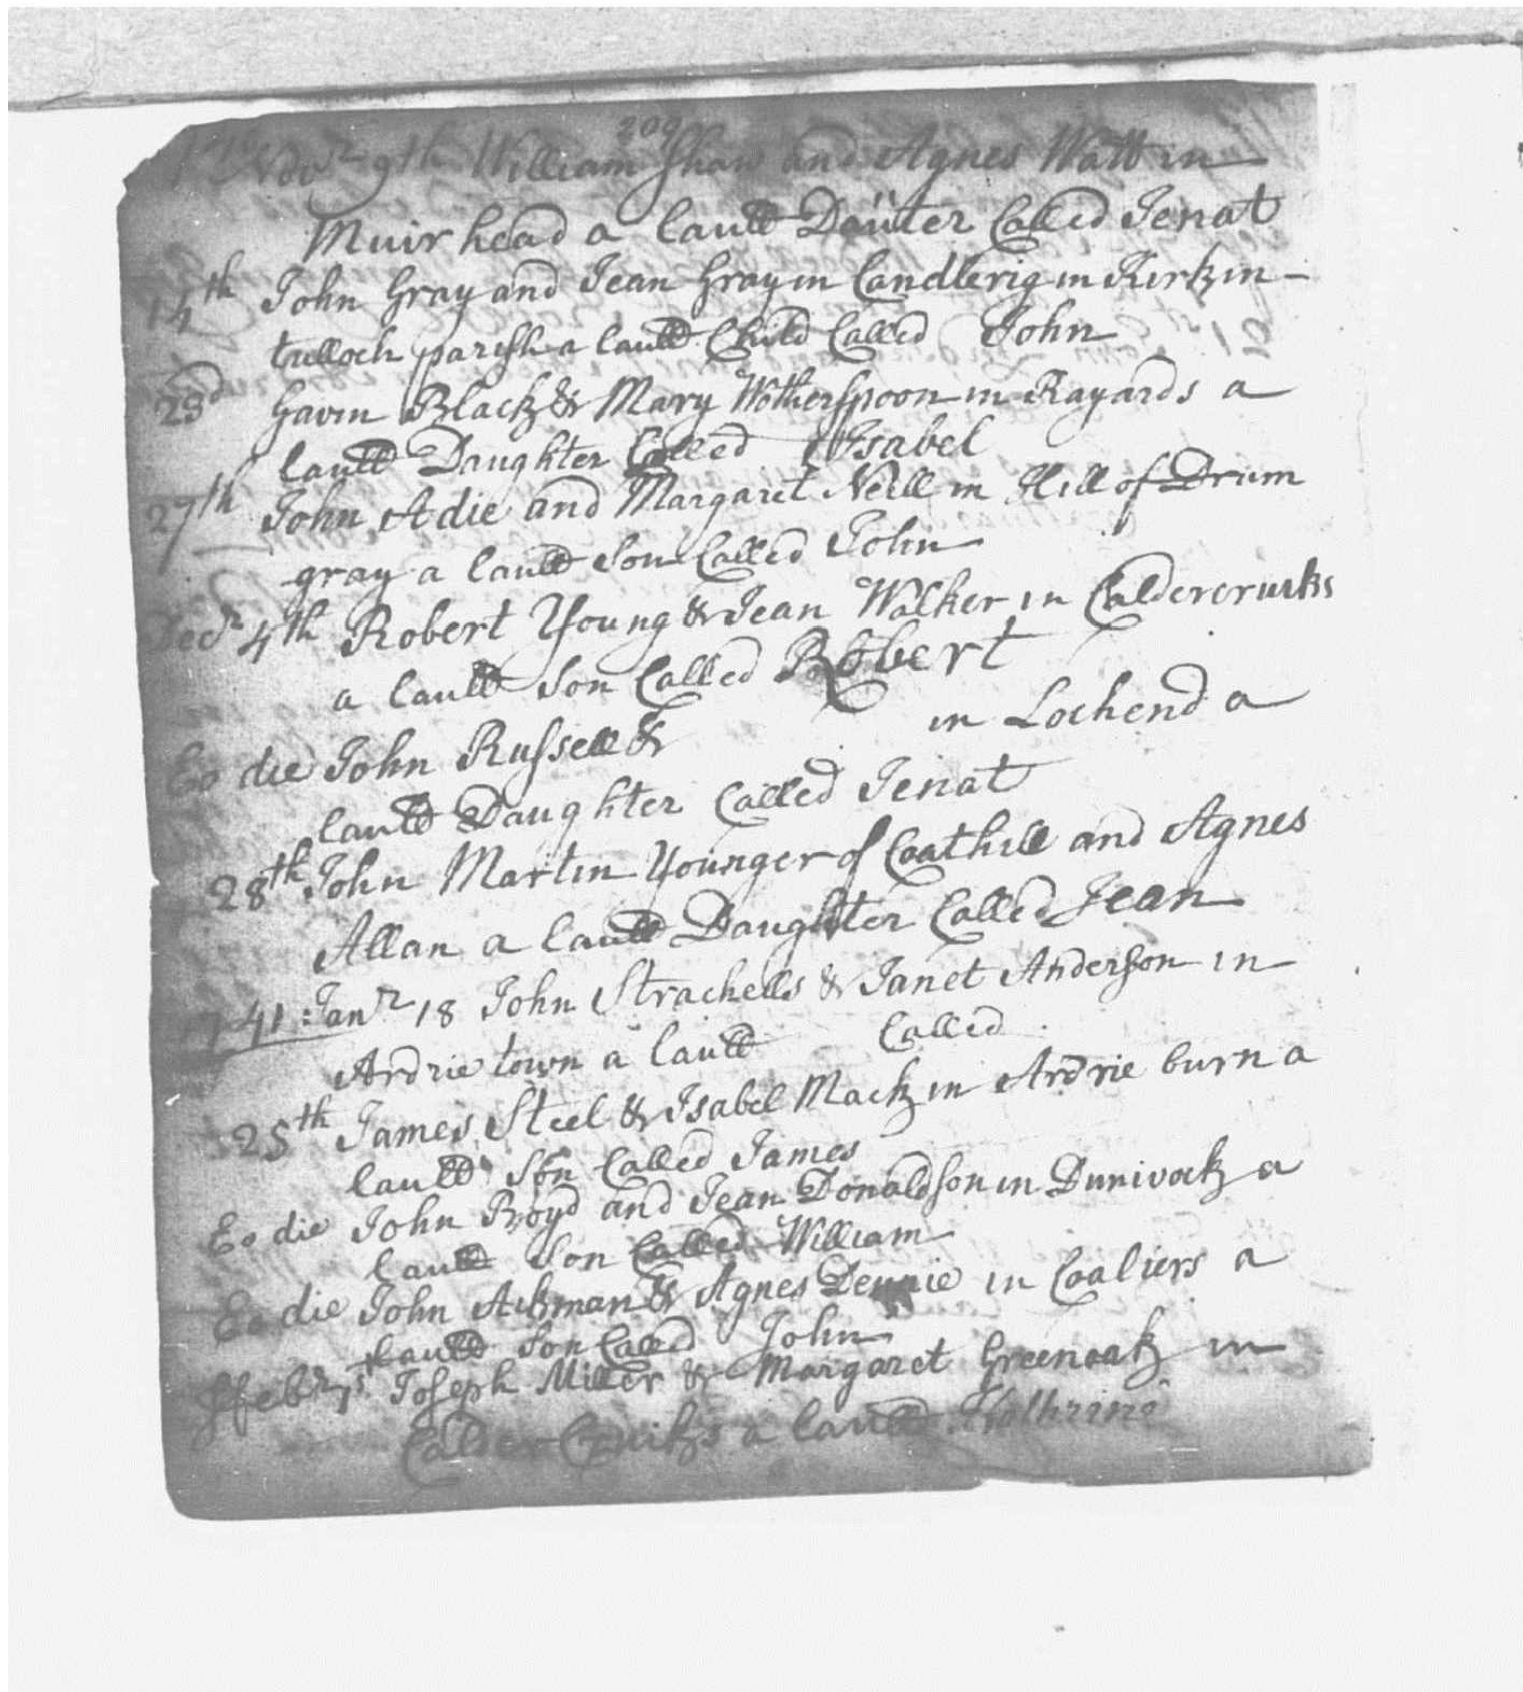 209
Novr 9th William Shaw and Agnes Watt in
Muirhead a laull Dauter Called Jenat
14th John Gray and Jean Gray in Candlerig in Kirkin-
tulloch parish a laull Child Called John
23d Gavin Black & Mary Wotherspoon in Rayards a
laull Daughter Called Isabel
27th John Adie and Margaret Neill in Hill of Drum
gray a laull Son Called John
Decr 4th Robert Young & Jean Walker in Caldercruiks
a laull Son Called Robert
Eo die John Russell & in Lochend a
laull Daughter Called Jenat
28th John Martin Younger of Coathill and Agnes
Allan a laull Daughter Called Jean
1741: Janr 18 John Strachells & Janet Anderson in
Ardrie town a laull Called
25th James Steel & Isabel Mack in Ardrie burn a
laull Son Called James
Eo die John Boyd and Jean Donaldson in Dunivock a
laull Son Called William
Eo die John Aikman & Agnes Dennie in Coaliers a
laull Son Called John
Ffebr 1st Joseph Miller & Margaret Greenoak in
Calder Cruiks a laull Kathrine